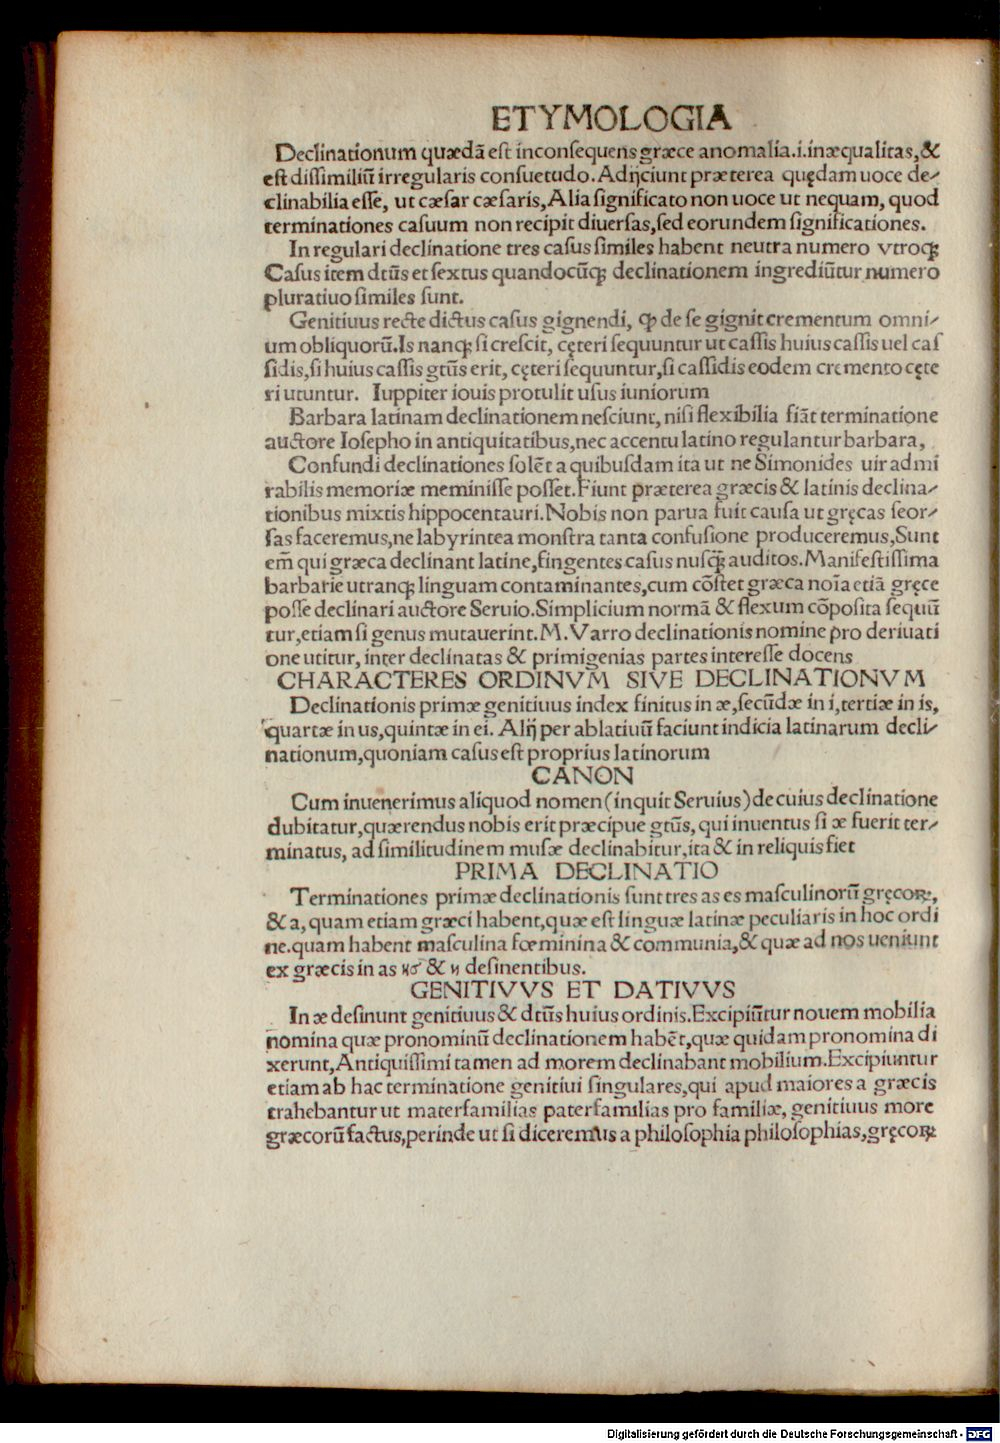 ETYMOLOGIA
Declinationum quædã eſt inconſequens græce anomalia.i.inæqualitas,&
eſt diſſimiliũ irregularis conſuetudo.Adijciunt præterea quędam uoce de-
clinabilia eſſe, ut cæſar cæſaris,Alia ſignificato non uoce ut nequam, quod
terminationes caſuum non recipit diuerſas,ſed eorundem ſignificationes.
In regulari declinatione tres caſus ſimiles habent neutra numero vtroqꝫ
Caſus item dtũs et ſextus quandocũqꝫ declinationem ingrediũtur numero
pluratiuo ſimiles ſunt.
Genitiuus recte dictus caſus gignendi, ꝙ de ſe gignit crementum omni-
um obliquorũ.Is nanqꝫ ſi creſcit, cęteri ſequuntur ut caſſis huius caſſis uel caſ
ſidis,ſi huius caſſis gtũs erit, cęteri ſequuntur,ſi caſſidis eodem cremento cęte
ri utuntur. Iuppiter iouis protulit uſus iuniorum
Barbara latinam declinationem neſciunt, niſi flexibilia fiãt terminatione
auctore Ioſepho in antiquitatibus,nec accentu latino regulantur barbara,
Confundi declinationes ſolẽt a quibuſdam ita ut ne Simonides uir admi
rabilis memoriæ meminiſſe poſſet.Fiunt præterea græcis & latinis declina-
tionibus mixtis hippocentauri.Nobis non parua fuit cauſa ut gręcas ſeor-
ſas faceremus,ne labyrintea monſtra tanta confuſione produceremus,Sunt
em̃ qui græca declinant latine,fingentes caſus nuſꝙ̃ auditos.Manifeſtiſſima
barbarie utranqꝫ linguam contaminantes,cum cõſtet græca noĩa etiã gręce
poſſe declinari auctore Seruio.Simplicium normã & flexum cõpoſita ſequũ
tur,etiam ſi genus mutauerint.M.Varro declinationis nomine pro deriuati
one utitur, inter declinatas & primigenias partes intereſſe docens
CHARACTERES ORDINVM SIVE DECLINATIONVM
Declinationis primæ genitiuus index finitus in æ,ſecũdæ in i,tertiæ in is,
quartæ in us,quintæ in ei. Alij per ablatiuũ faciunt indicia latinarum decli-
nationum,quoniam caſus eſt proprius latinorum
CANON
Cum inuenerimus aliquod nomen(inquit Seruius)de cuius declinatione
dubitatur,quærendus nobis erit præcipue gtũs, qui inuentus ſi æ fuerit ter-
minatus, ad ſimilitudinem muſæ declinabitur,ita & in reliquis fiet
PRIMA DECLINATIO
Terminationes primæ declinationis ſunt tres as es maſculinorũ gręcoꝝ,
& a, quam etiam græci habent,quæ eſt linguæ latinæ peculiaris in hoc ordi
ne.quam habent maſculina fœminina & communia,& quæ ad nos ueniunt
ex græcis in as & deſinentibus.
GENITIVVS ET DATIVVS
In æ deſinunt genitiuus & dtũs huius ordinis.Excipiũtur nouem mobilia
nomina quæ pronominũ declinationem habẽt,quæ quidam pronomina di
xerunt,Antiquiſſimi tamen ad morem declinabant mobilium.Excipiuntur
etiam ab hac terminatione genitiui ſingulares,qui apud maiores a græcis
trahebantur ut materfamilias paterfamilias pro familiæ, genitiuus more
græcorũ factus,perinde ut ſi diceremus a philoſophia philoſophias,gręcoꝝ
Digitalisierung gefördert durch die Deutsche Forschungsgemeinschaft - DFG